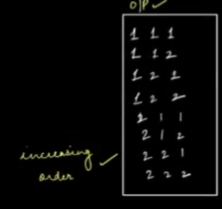 O/P
1 1 1
1 1 2
1 2 1
1 2 2
2 1 1
2 1 2
2 2 1
2 2 2
increasing
order